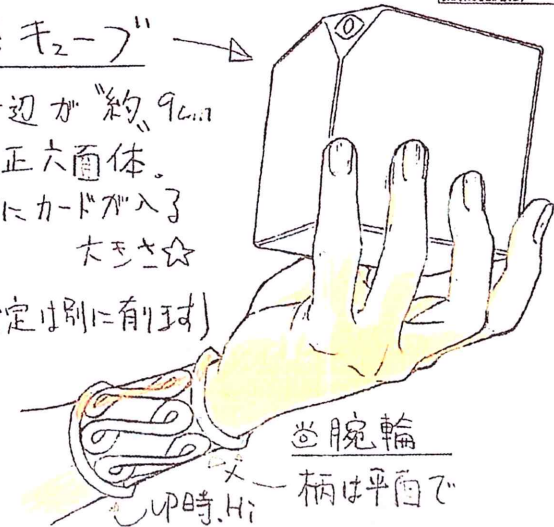 キューブ
辺が"約"9cm
正六面体。
にカードが入る
大きさ☆
定は別に有ります)
腕輪
柄は平面で
UP時、Hi